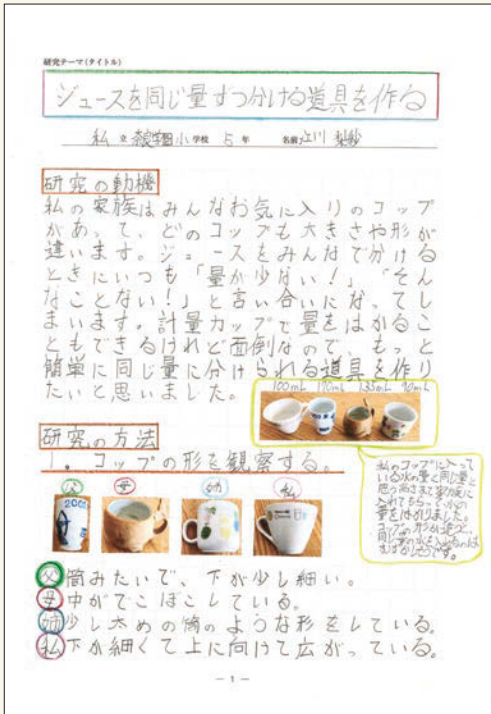 研究テーマ(タイトル)
ジュースを同じ量ずつ分ける道具を作る
私 立 奈良学園小 学校 5 年 名前 江川 梨紗
研究の動機
私の家族はみんなお気に入りのコップ
があって、どのコップも大きさや形が
違います。ジュースをみんなで分ける
ときにいつも「量が少ない!」、「そん
なことない!」と言い合いになってし
まいます。計量カップで量をはかるこ
ともできるけれど面倒なので、もっと
簡単に同じ量に分けられる道具を作り
たいと思いました。
100mL 170mL 135mL 90mL
研究の方法
1.コップの形を観察する。
父 母 姉 私
私のコップに入って
いる水の量と同じ量と
思う高さまで家族に
入れてもらい、水の
量をはかりました。
コップの形が違うと、
同じ量の水を入れるのは
むずかしそうです。
父 筒みたいで、下が少し細い。
母 中がでこぼこしている。
姉 少し太めの筒のような形をしている。
私 下が細くて上に向けて広がっている。
- 1 -